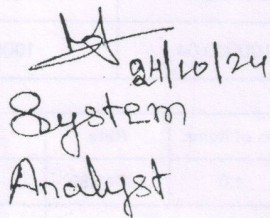 24/10/24
System
Analyst